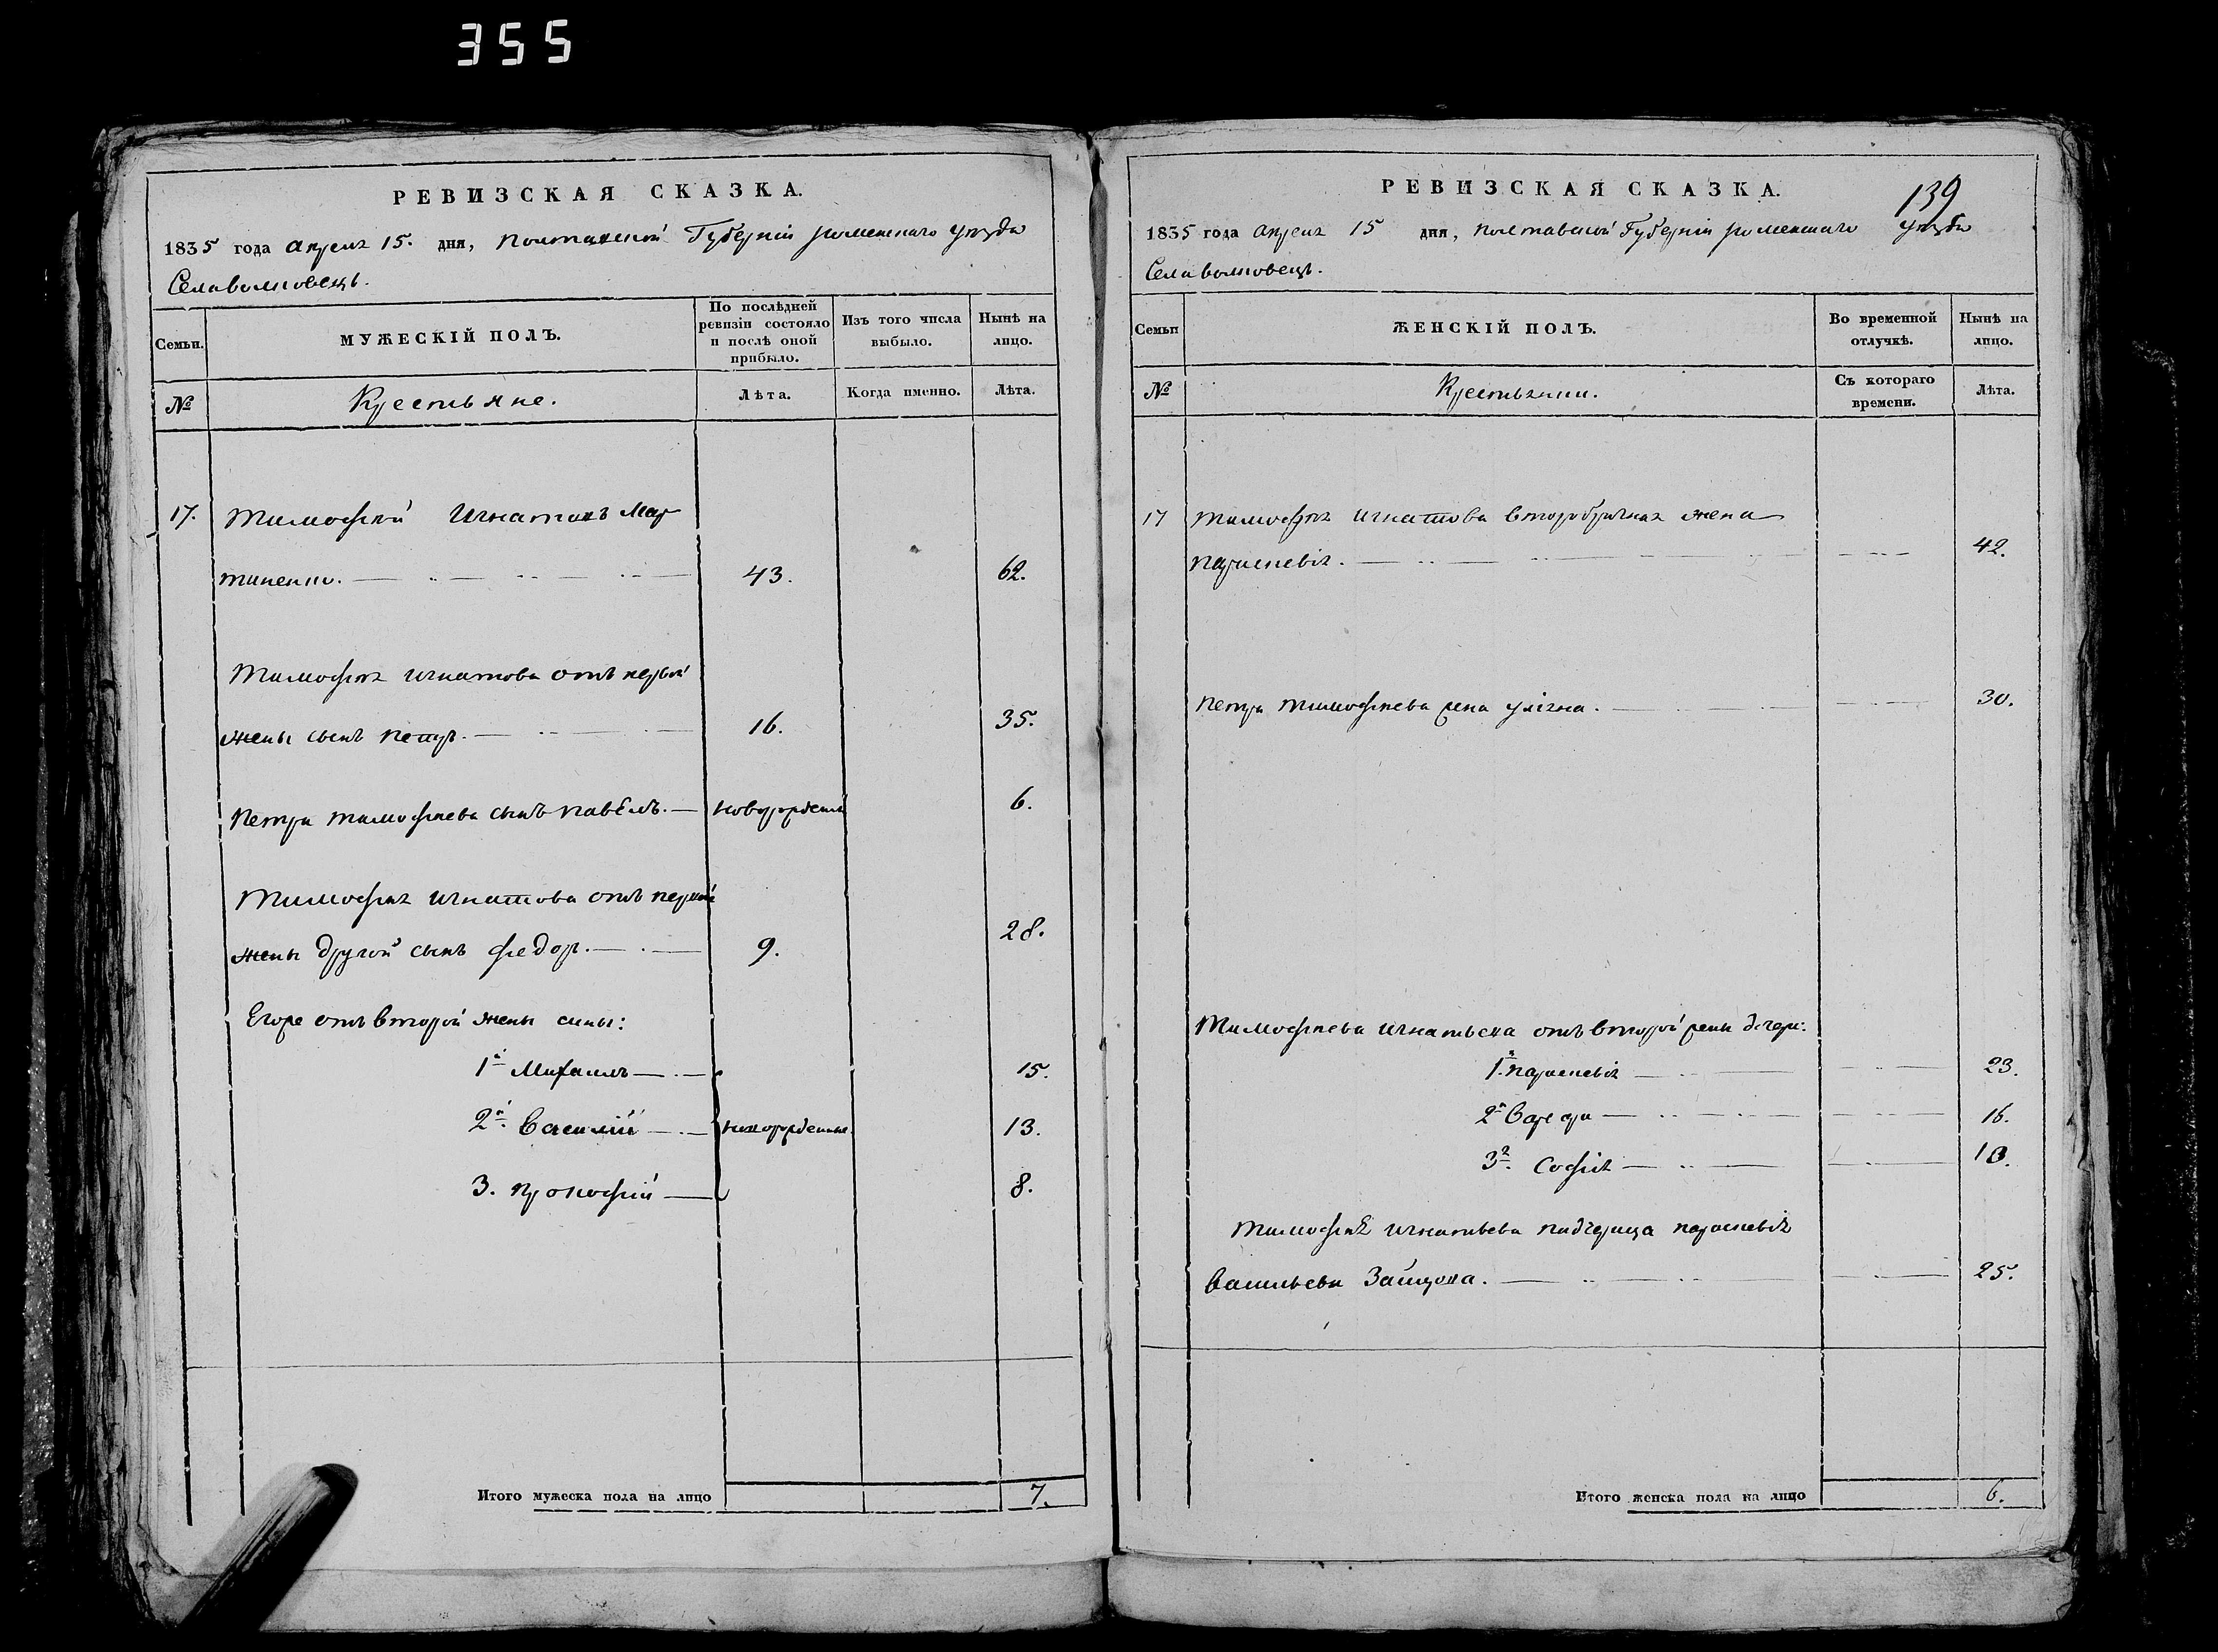 355
РЕВИЗСКАЯ СКАЗКА.
1835 года апреля 15. дня, Полтавской Губерніи роменского уезда
Села волковецъ.
Семьи.
МУЖЕСКІЙ ПОЛЪ.
По послѣдней ревизіи состояло и послѣ оной прибыло.
Изъ того числа выбыло.
Нынѣ на лицо.
№
Крестьяне.
Лѣта.
Когда именно.
Лѣта.
17. Тимофѣй Игнатовъ Мар
тиненко. 43. 62.
Тимофѣя игнатова отъ первой
жены сынъ петръ. 16. 35.
Петра тимофѣева сынъ павелъ. новорожденъ 6.
Тимофѣя игнатова отъ первой
жены другой сынъ федор. 9. 28.
Егоже отъ второй жены сины:
1й Михаилъ 15.
2й Василій новорожденные. 13.
3. прокофій 8.
Итого мужеска пола на лицо 7.
139
РЕВИЗСКАЯ СКАЗКА.
1835 года апреля 15 дня, полтавской Губерніи роменского уезда
Села волковецъ.
Семьи
ЖЕНСКІЙ ПОЛЪ.
Во временной отлучкѣ.
Нынѣ на лицо.
№
Съ котораго времени.
Лѣта.
17 тимофѣя игнатова второбрачная жена
параскевія. 42.
петра тимофѣева жена 30.
Тимофѣева отъ второй жены дочери:
1я параскевія 23.
2я 16.
3я. Софія
Тимофѣя игнатьева падчерица параскевія
васильева 25.
Итого женска пола на лицо 6.